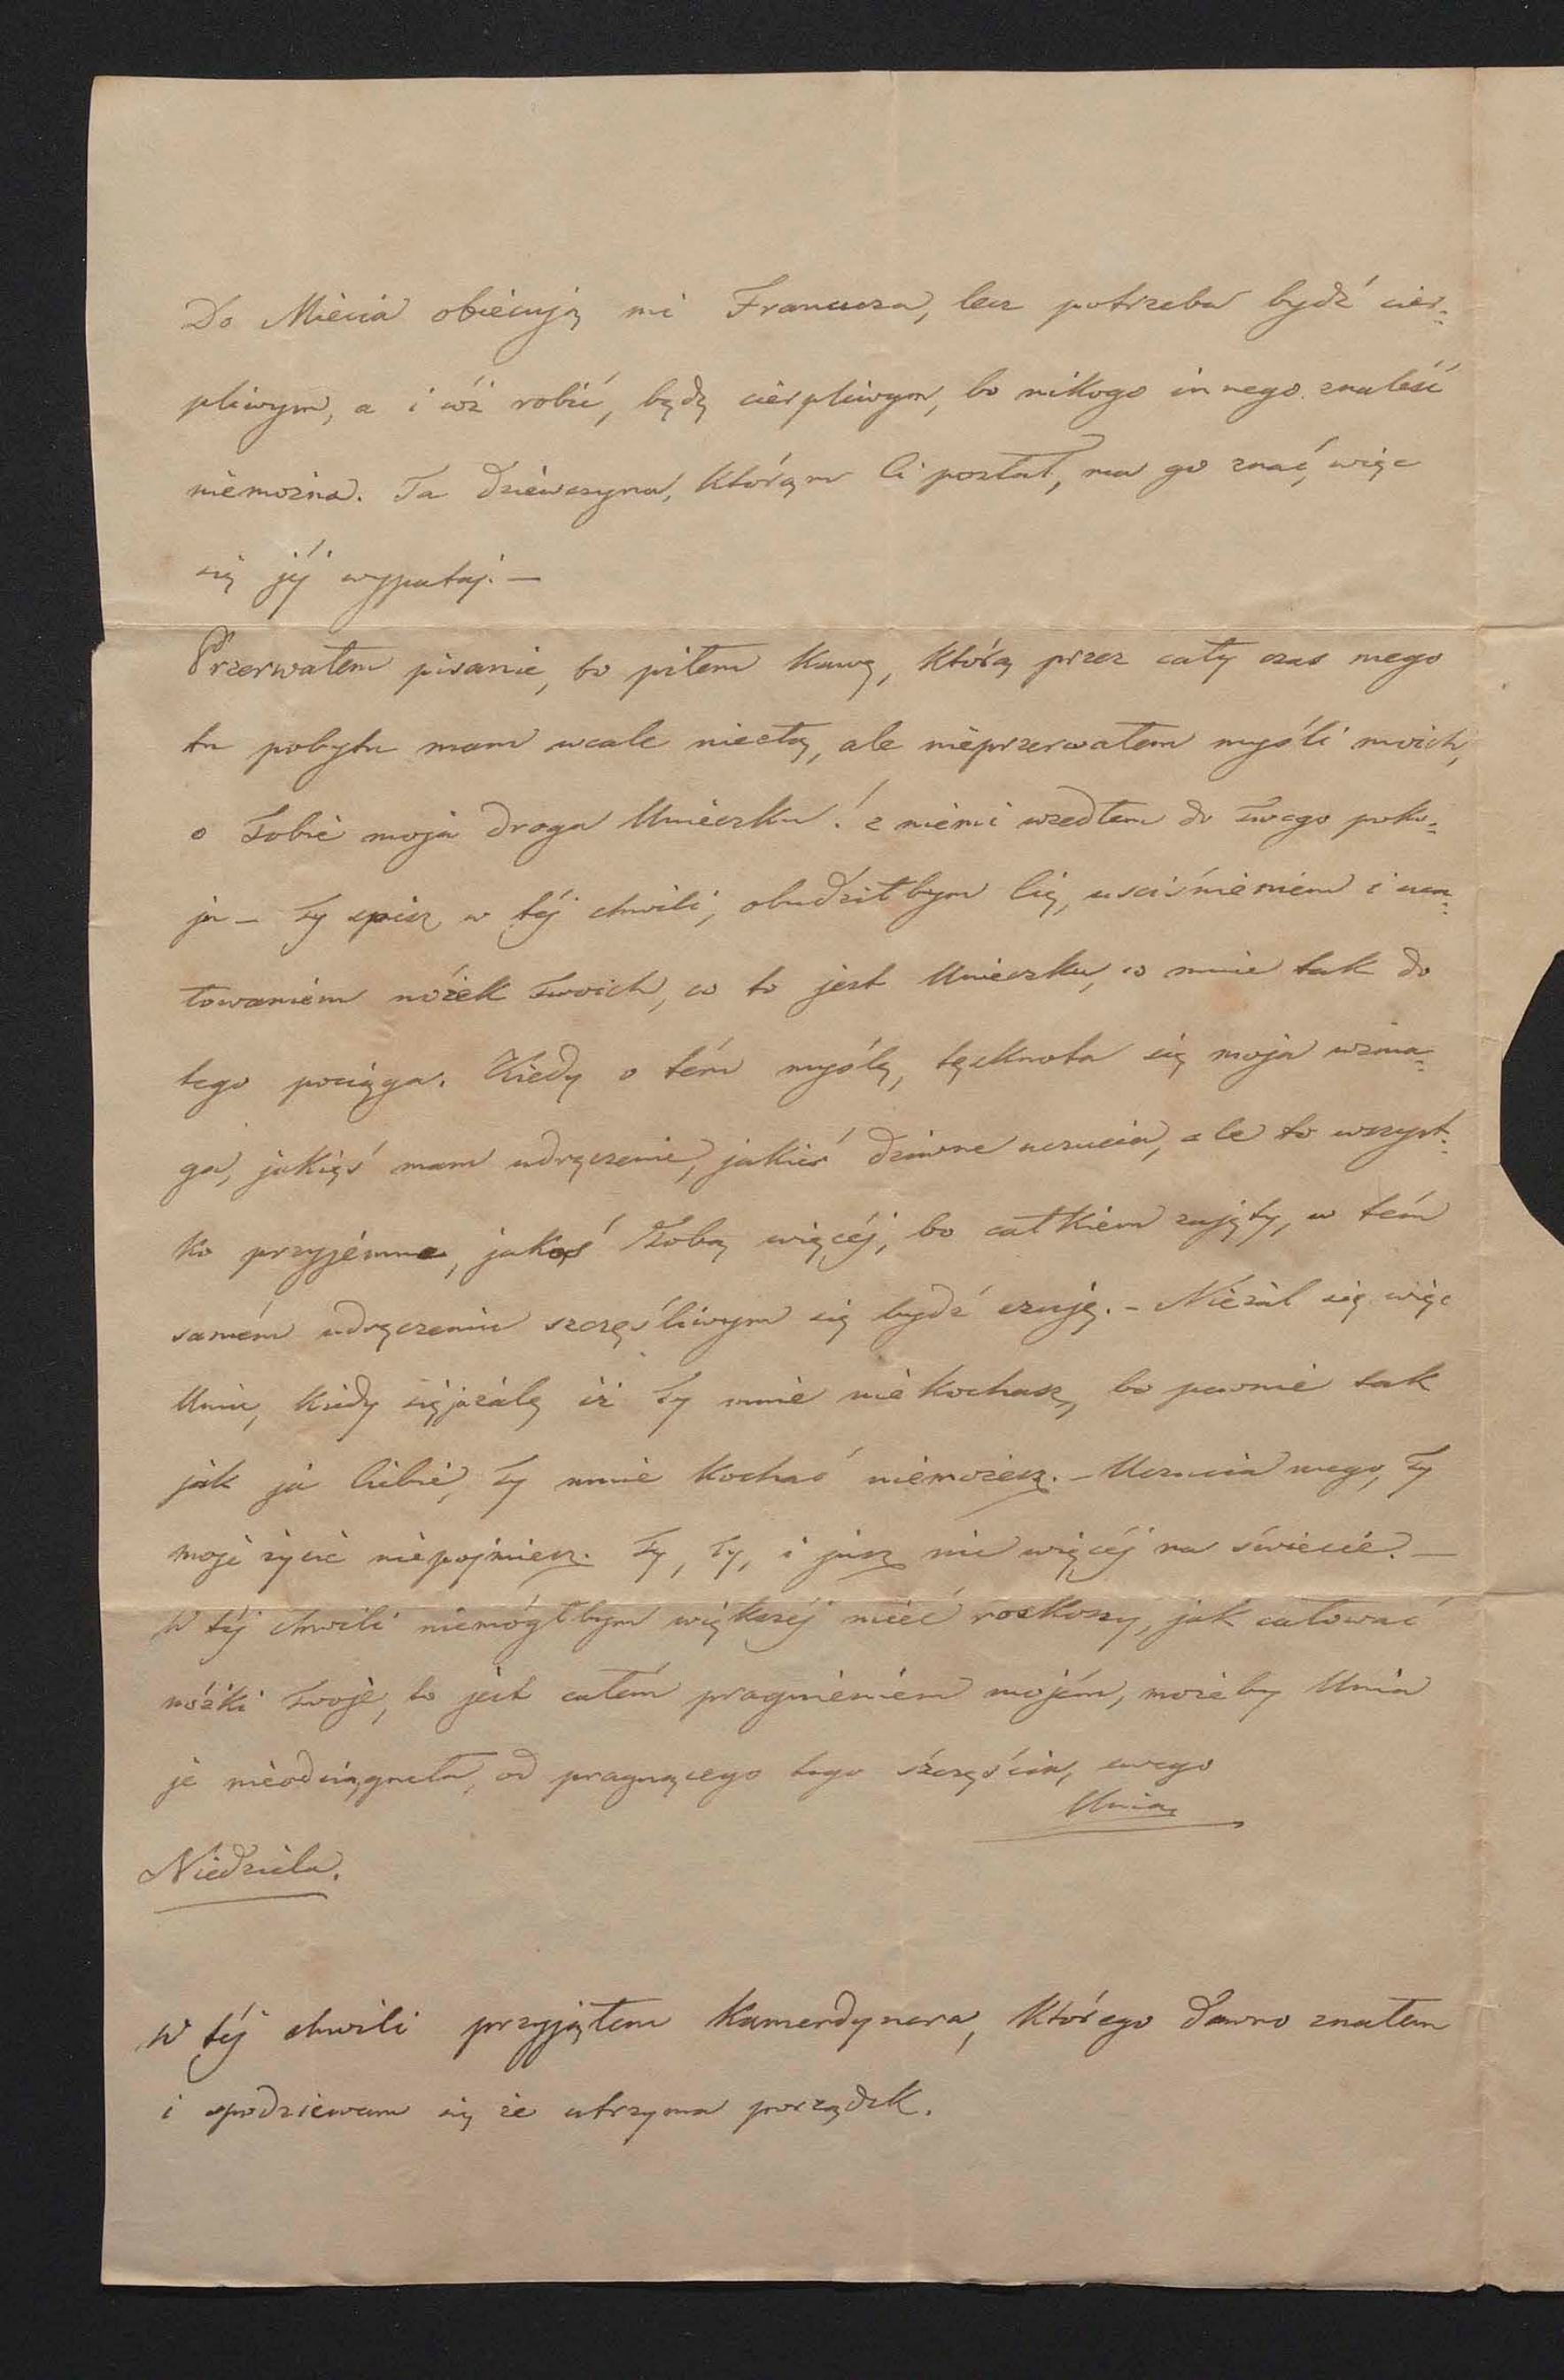 Do Miecia obiecują mi Francuza, lecz potrzeba bydź cier-
pliwym, a i cóż robić, będę cierpliwym, bo nikogo innego znaleść
niemożna. Ta dziewczyna, którąm Ci posłał, ma go znać, więc
się jéj wypytaj. —
Przerwałem pisanie, bo piłem kawę, którą przez cały czas mego
tu pobytu mam wcale niezłą, ale nieprzerwałem myśli moich,
o Tobie moja droga Unieczku! z niemi wszedłem do Twego poko-
ju – Ty śpisz w téj chwili, obudziłbym Cię, uściśnieniem i uca-
łowaniem nóżek Twoich, co to jest Unieczku, co mnie tak do
tego pociąga. Kiedy o tém myślę, tęsknota się moja wzma-
ga, jakieś mam udręczenie, jakieś dziwne uczucia, ale to wszyst-
ko przyjemne, jakoś Tobą więcéj, bo całkiem zajęty, w tém
samém udręczeniu szczęśliwym się bydź czuję. – Nieżal się więc
Uniu, kiedy się ja żalę iż Ty mnie niekochasz, bo pewnie tak
jak ja Ciebie, Ty mnie kochać niemożesz. – Uczucia mego, Ty
moje życie niepojmiesz. Ty, Ty, i jusz nic więcéj na świecie. —
W téj chwili niemógłbym większéj mieć roskoszy, jak całować
nóżki Twoje, to jest całém pragnieniem mojém, możeby Unia
je nieodciągneła, od pragnącego tego szczęścia, swego
Unia
Niedziela.
W téj chwili przyjąłem Kamerdynera, którego dawno znałem
i spodziewam się że utrzyma porządek.